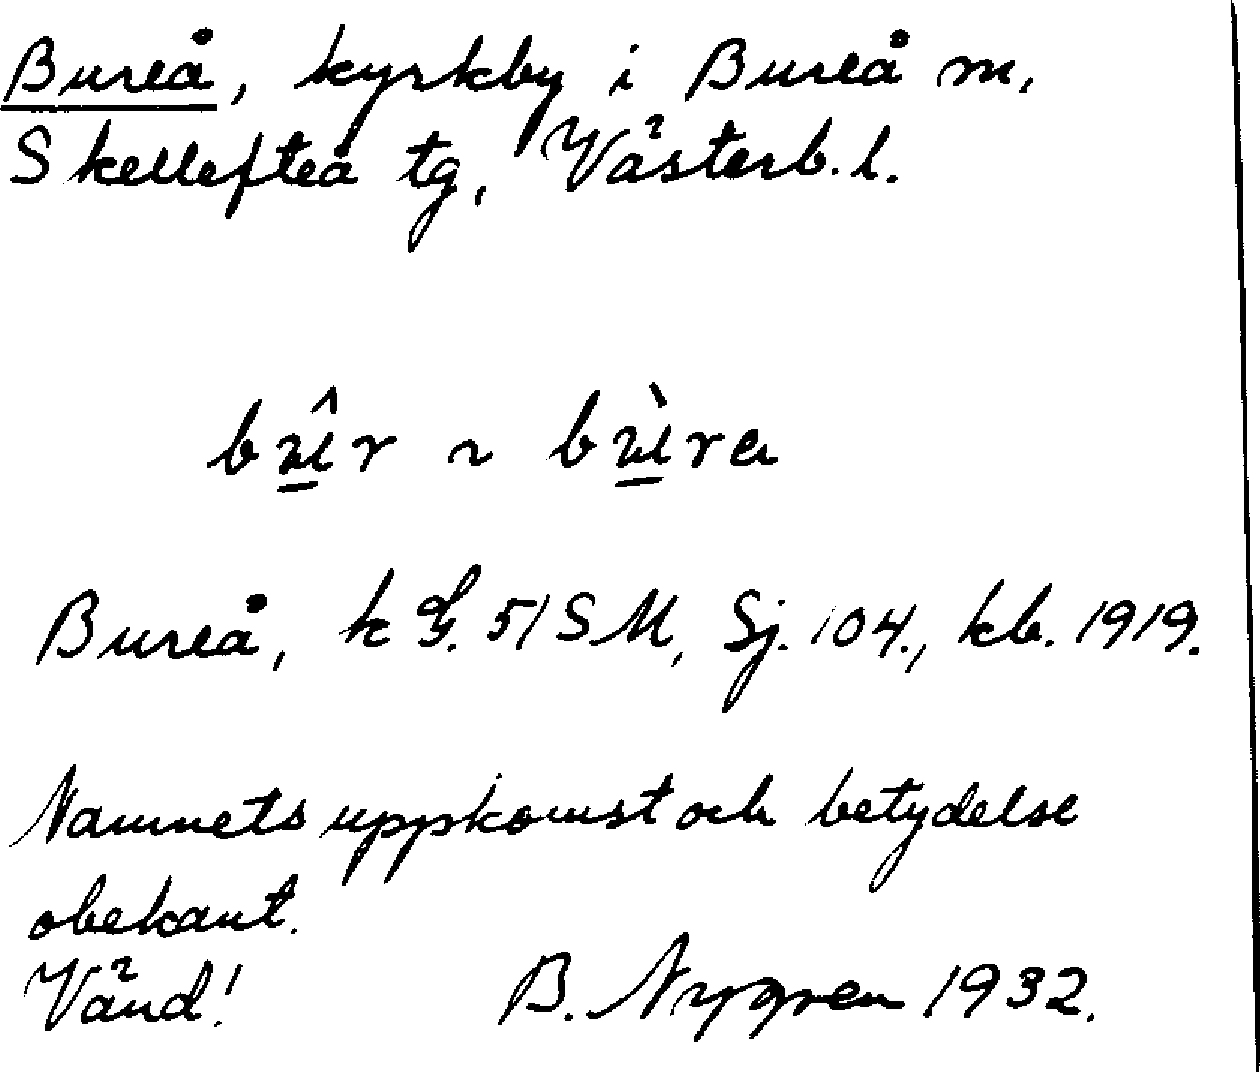 Bureå, kyrkby i Bureå m,
Skellefteå tg, Västerb. l.
bû̲r ~ bù̲ra
Bureå, k G. 51 SM, Sj. 104., kb. 1919.
Namnets uppkomst och betydelse
obekant.
Vänd! B. Nygren 1932.